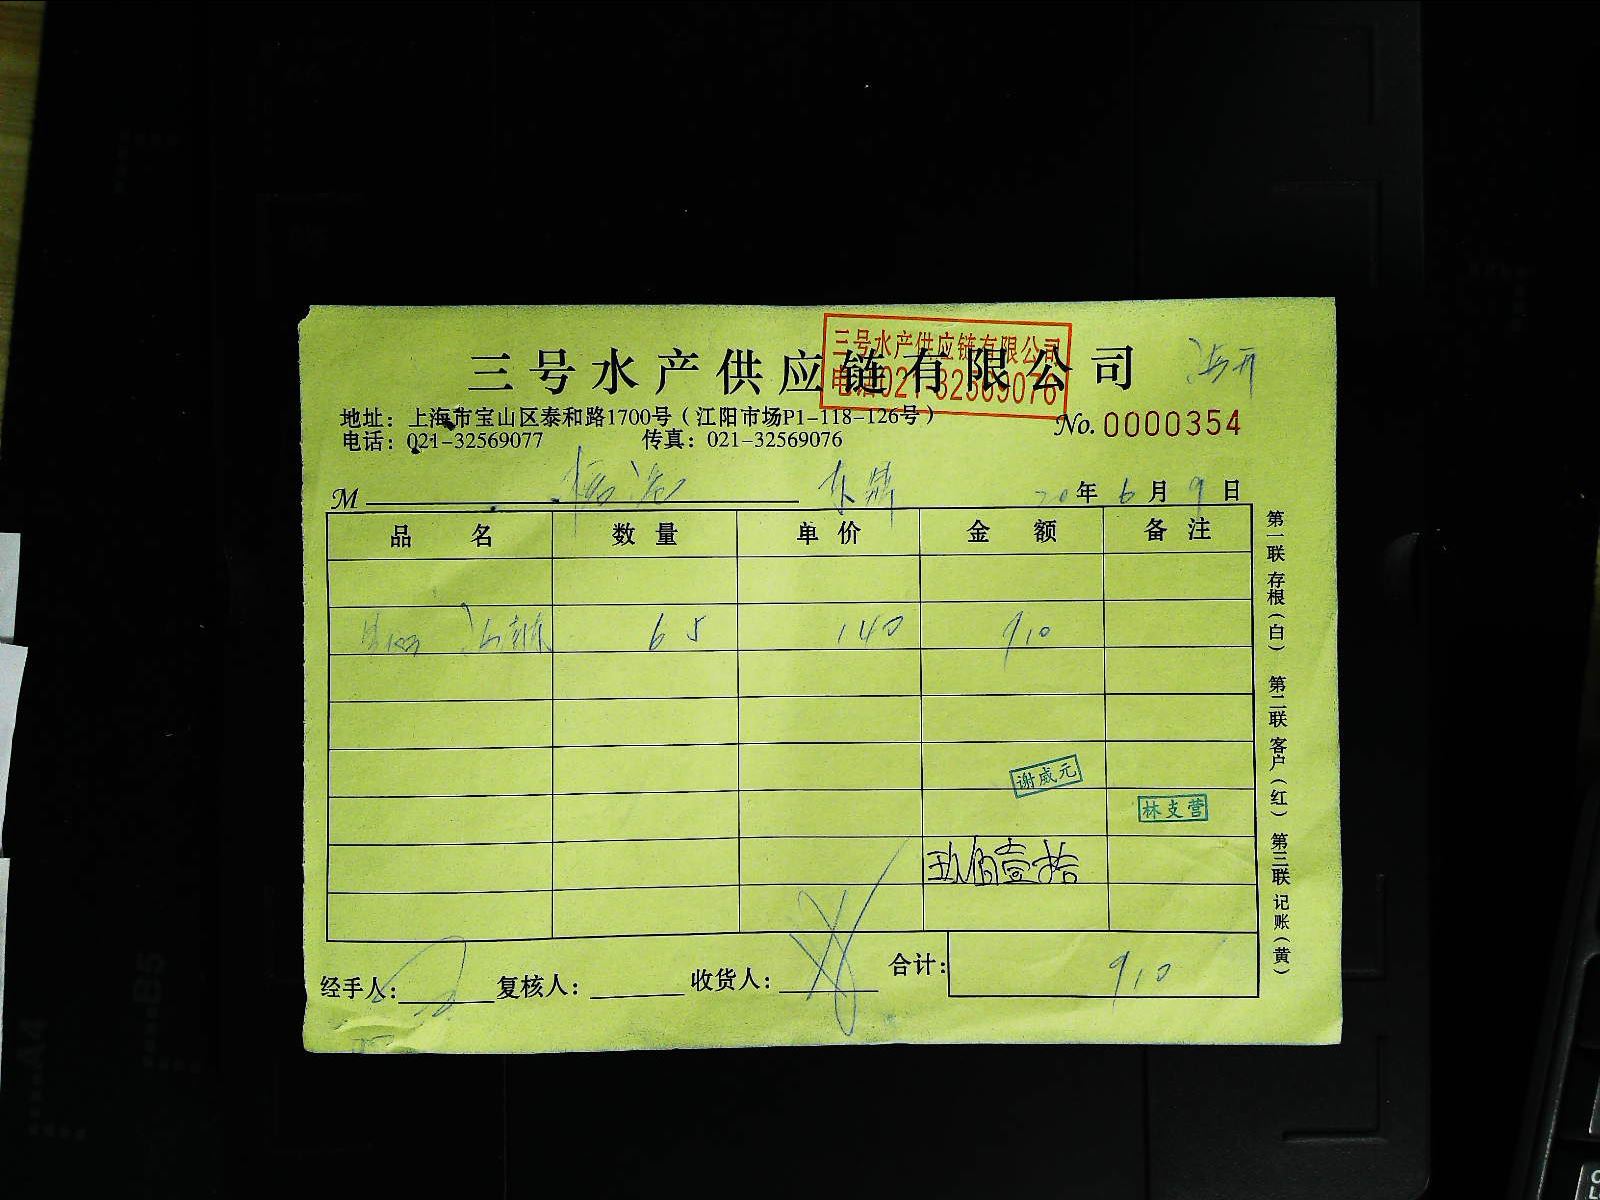 三号水产供应链有限公司
电话021-32569076
三号水产供应链有限公司
地址：上海市宝山区泰和路1700号（江阳市场P1-118-126号）
电话：021-32569077 传真：021-32569076
No. 0000354
M 东鼎 20年6月9日
品名 数量 单价 金额 备注
65 140 910
谢威元
林支营
玖佰壹拾
经手人： 复核人： 收货人： 合计： 910
第一联 存根（白） 第二联 客户（红） 第三联 记账（黄）
B5
A4